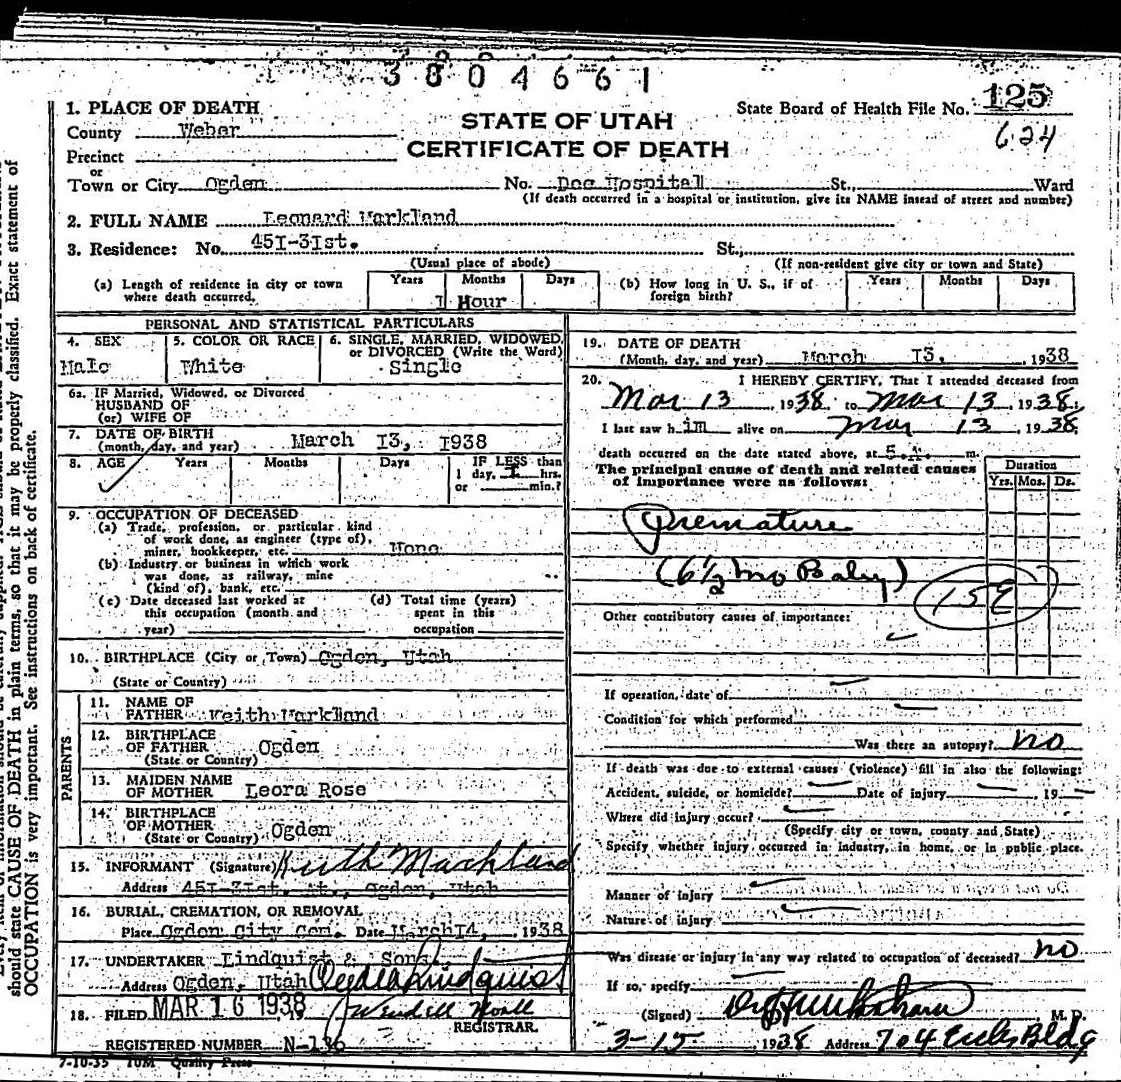 3804661
1. PLACE OF DEATH
County Weber
Precinct
or
Town or City Ogden No. Dee Hospital St., Ward
(If death occurred in a hospital or institution, give its NAME instead of street and number)
STATE OF UTAH
CERTIFICATE OF DEATH
State Board of Health File No. 125
624
2. FULL NAME Leonard Markland
3. Residence: No. 451-31st. St.,
(Usual place of abode) (If non-resident give city or town and State)
(a) Length of residence in city or town where death occurred. Years Months Days
1 Hour
(b) How long in U. S., if of foreign birth? Years Months Days
PERSONAL AND STATISTICAL PARTICULARS
4. SEX
Male
5. COLOR OR RACE
White
6. SINGLE, MARRIED, WIDOWED, or DIVORCED (Write the Word)
Single
6a. IF Married, Widowed, or Divorced
HUSBAND OF
(or) WIFE OF
7. DATE OF BIRTH
(month, day, and year) March 13, 1938
8. AGE Years Months Days IF LESS than
1 day, 1 hrs.
or min.?
9. OCCUPATION OF DECEASED
(a) Trade, profession, or particular kind
of work done, as engineer (type of),
miner, bookkeeper, etc. None
(b) Industry or business in which work
was done, as railway, mine
(kind of), bank, etc.
(c) Date deceased last worked at
this occupation (month and
year)
(d) Total time (years)
spent in this
occupation
10. BIRTHPLACE (City or Town) Ogden, Utah
(State or Country)
PARENTS
11. NAME OF
FATHER Keith Markland
12. BIRTHPLACE
OF FATHER Ogden
(State or Country)
13. MAIDEN NAME
OF MOTHER Leora Rose
14. BIRTHPLACE
OF MOTHER
(State or Country) Ogden
15. INFORMANT (Signature) Keith Markland
Address 451-31st. St., Ogden, Utah
16. BURIAL, CREMATION, OR REMOVAL
Place Ogden City Cem. Date March 14, 1938
17. UNDERTAKER Lindquist & Sons
Address Ogden, Utah Lindquist
18. FILED MAR 16 1938
REGISTRAR.
REGISTERED NUMBER N-136
7-10-35 10M Quality Press
19. DATE OF DEATH
(Month, day, and year) March 13, 1938
20. I HEREBY CERTIFY, That I attended deceased from
Mar 13, 1938, to Mar 13, 1938;
I last saw him alive on Mar 13, 1938,
death occurred on the date stated above, at 5 A. m.
The principal cause of death and related causes
of importance were as follows:
Duration
Yrs. Mos. Ds.
Premature
(6½ mo Baby)
159
Other contributory causes of importance:
If operation, date of
Condition for which performed
Was there an autopsy? no
If death was due to external causes (violence) fill in also the following:
Accident, suicide, or homicide? Date of injury 19
Where did injury occur?
(Specify city or town, county and State)
Specify whether injury occurred in industry, in home, or in public place.
Manner of injury
Nature of injury
Was disease or injury in any way related to occupation of deceased? no
If so, specify
(Signed) M. D.
3-15 1938 Address 704 Eccles Bldg
should state CAUSE OF DEATH in plain terms, so that it may be properly classified. Exact statement of
OCCUPATION is very important. See instructions on back of certificate.